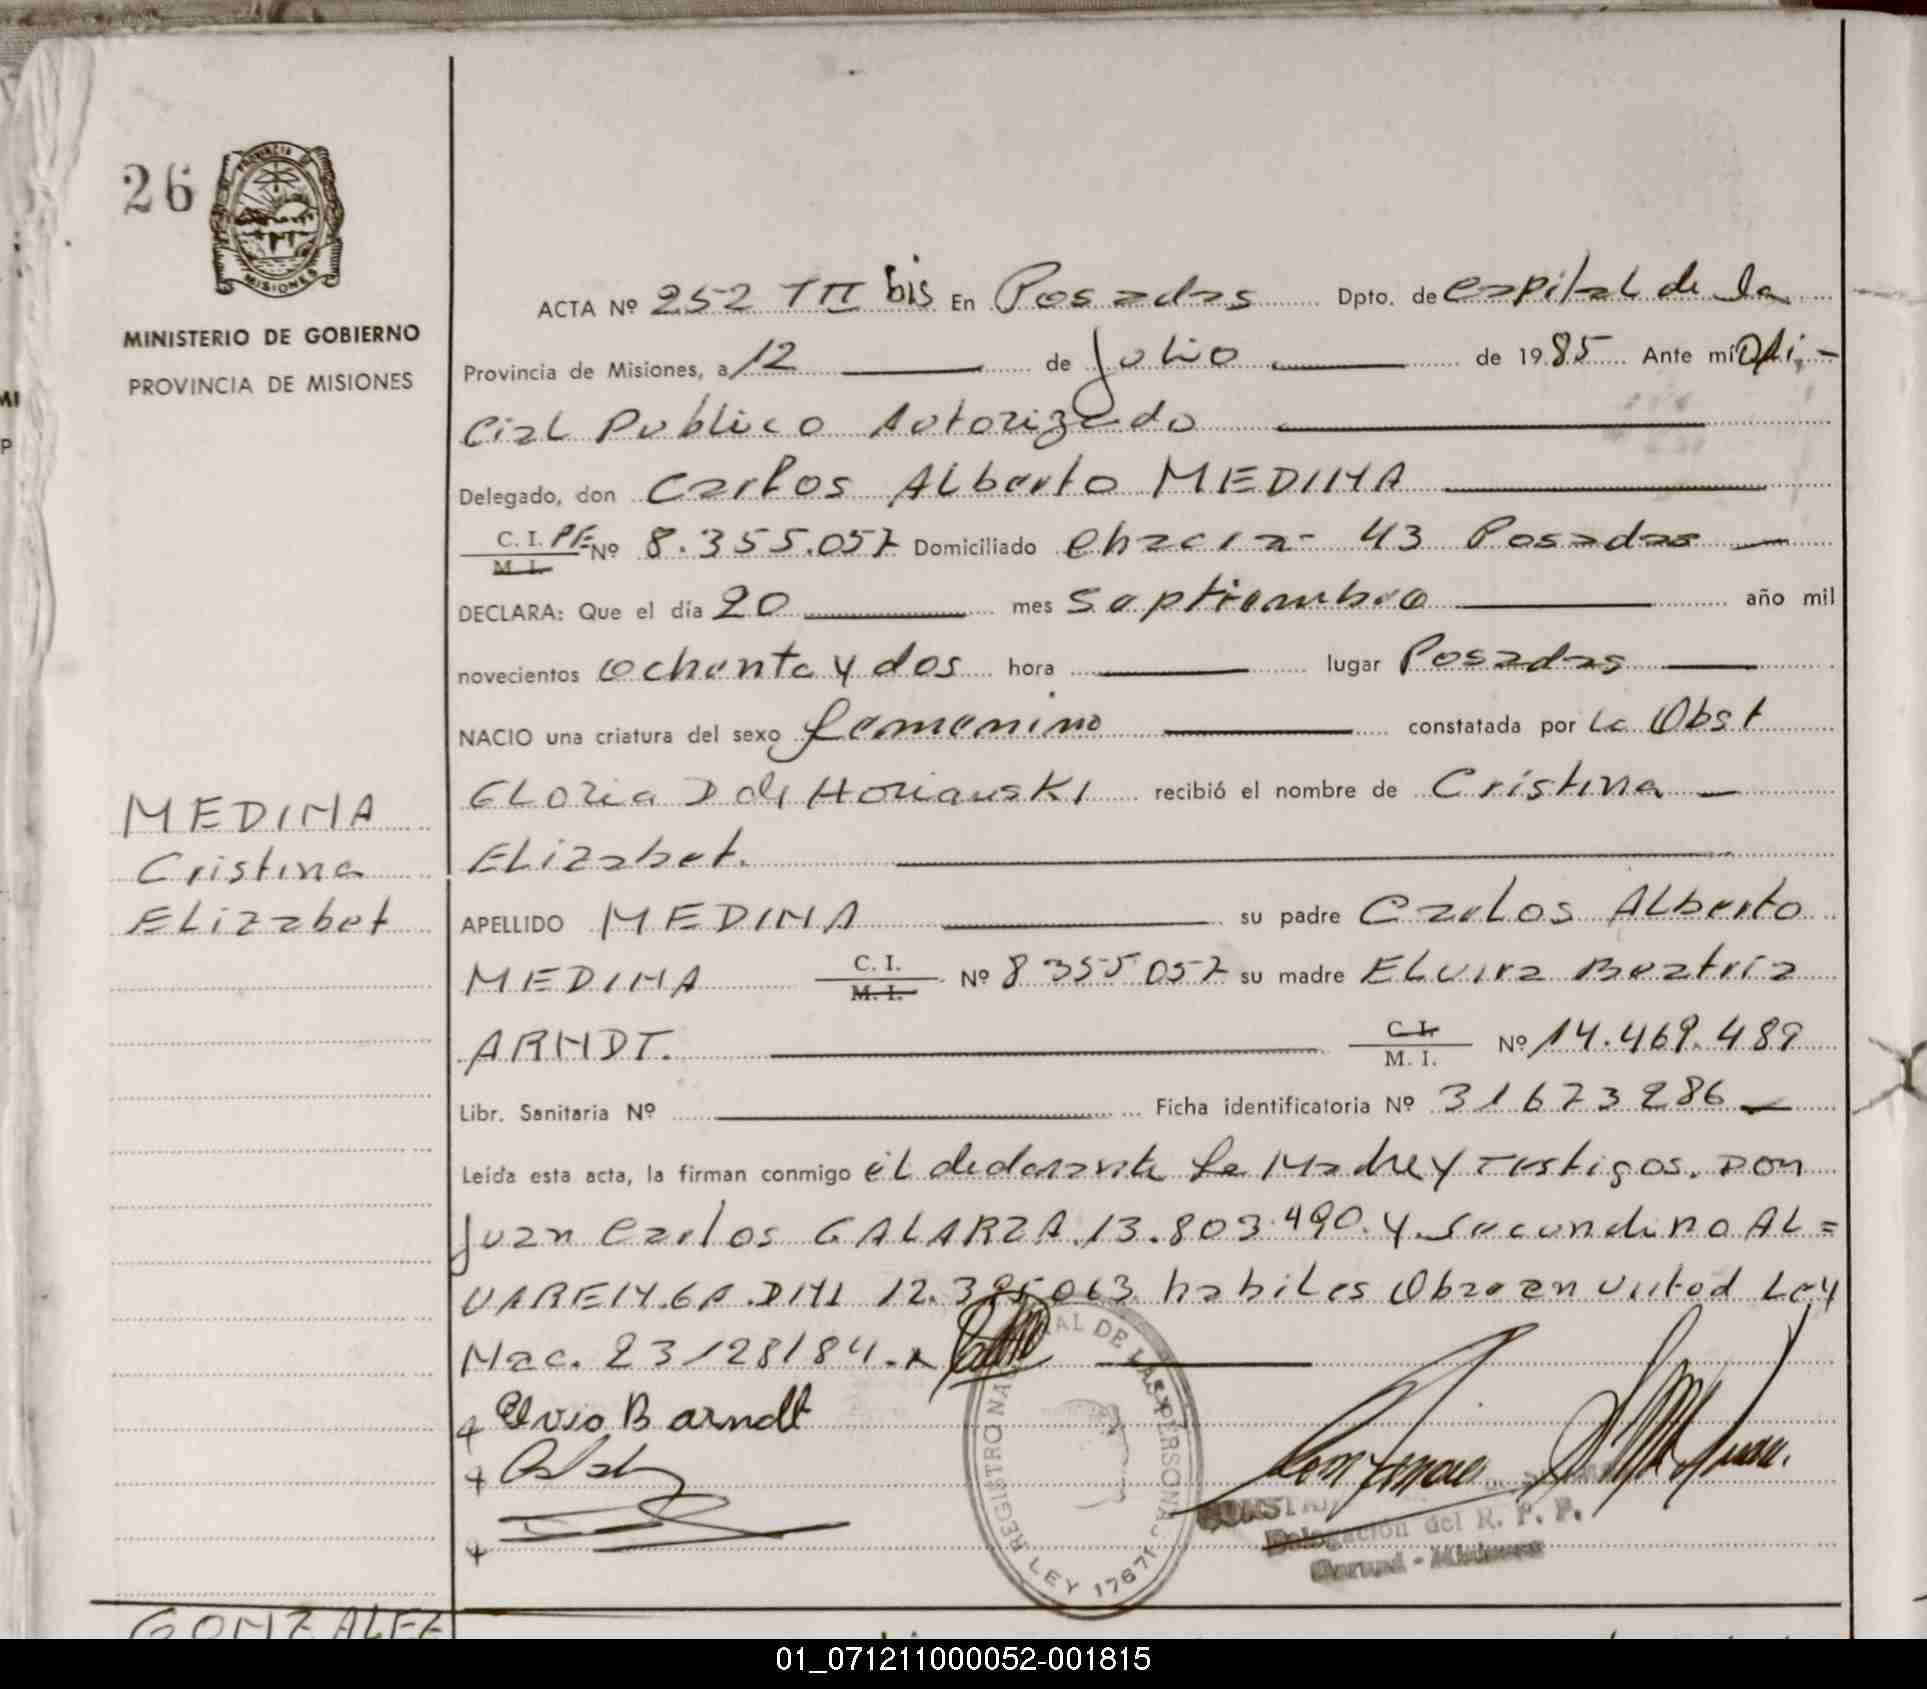 26
PROVINCIA DE
MISIONES
MINISTERIO DE GOBIERNO
PROVINCIA DE MISIONES
ACTA Nº 252 TIII bis En Posadas Dpto. de Capital de la
Provincia de Misiones, a 12 de Julio de 1985 Ante mí Ofi-
cial Publico Autorizado
Delegado, don Carlos Alberto MEDINA
C. I. PF Nº 8.355.057 Domiciliado Chacra- 43 Posadas
M. I.
DECLARA: Que el día 20 mes Septiembre año mil
novecientos ochenta y dos hora lugar Posadas
NACIO una criatura del sexo femenino constatada por la Obst
Gloria D de Horianski recibió el nombre de Cristina
Elizabet.
MEDINA
Cristina
Elizabet
APELLIDO MEDINA su padre Carlos Alberto
MEDINA C. I. M. I. Nº 8355057 su madre Elvira Beatriz
ARNDT. C. I. M. I. Nº 14.469.489
Libr. Sanitaria Nº Ficha identificatoria Nº 31673286
Leída esta acta, la firman conmigo el declarante la Madre y Testigos. Don
Juan Carlos GALARZA 13.803.490. y Secundino AL=
VARENGA DNI 12.395063 habiles Obra en virtud Ley
Nac. 23128/84.
Elvio B arndt
REGISTRO NACIONAL DE LAS PERSONAS
LEY 17671
Delegación del R. P. P.
GONZALEZ
01_071211000052-001815